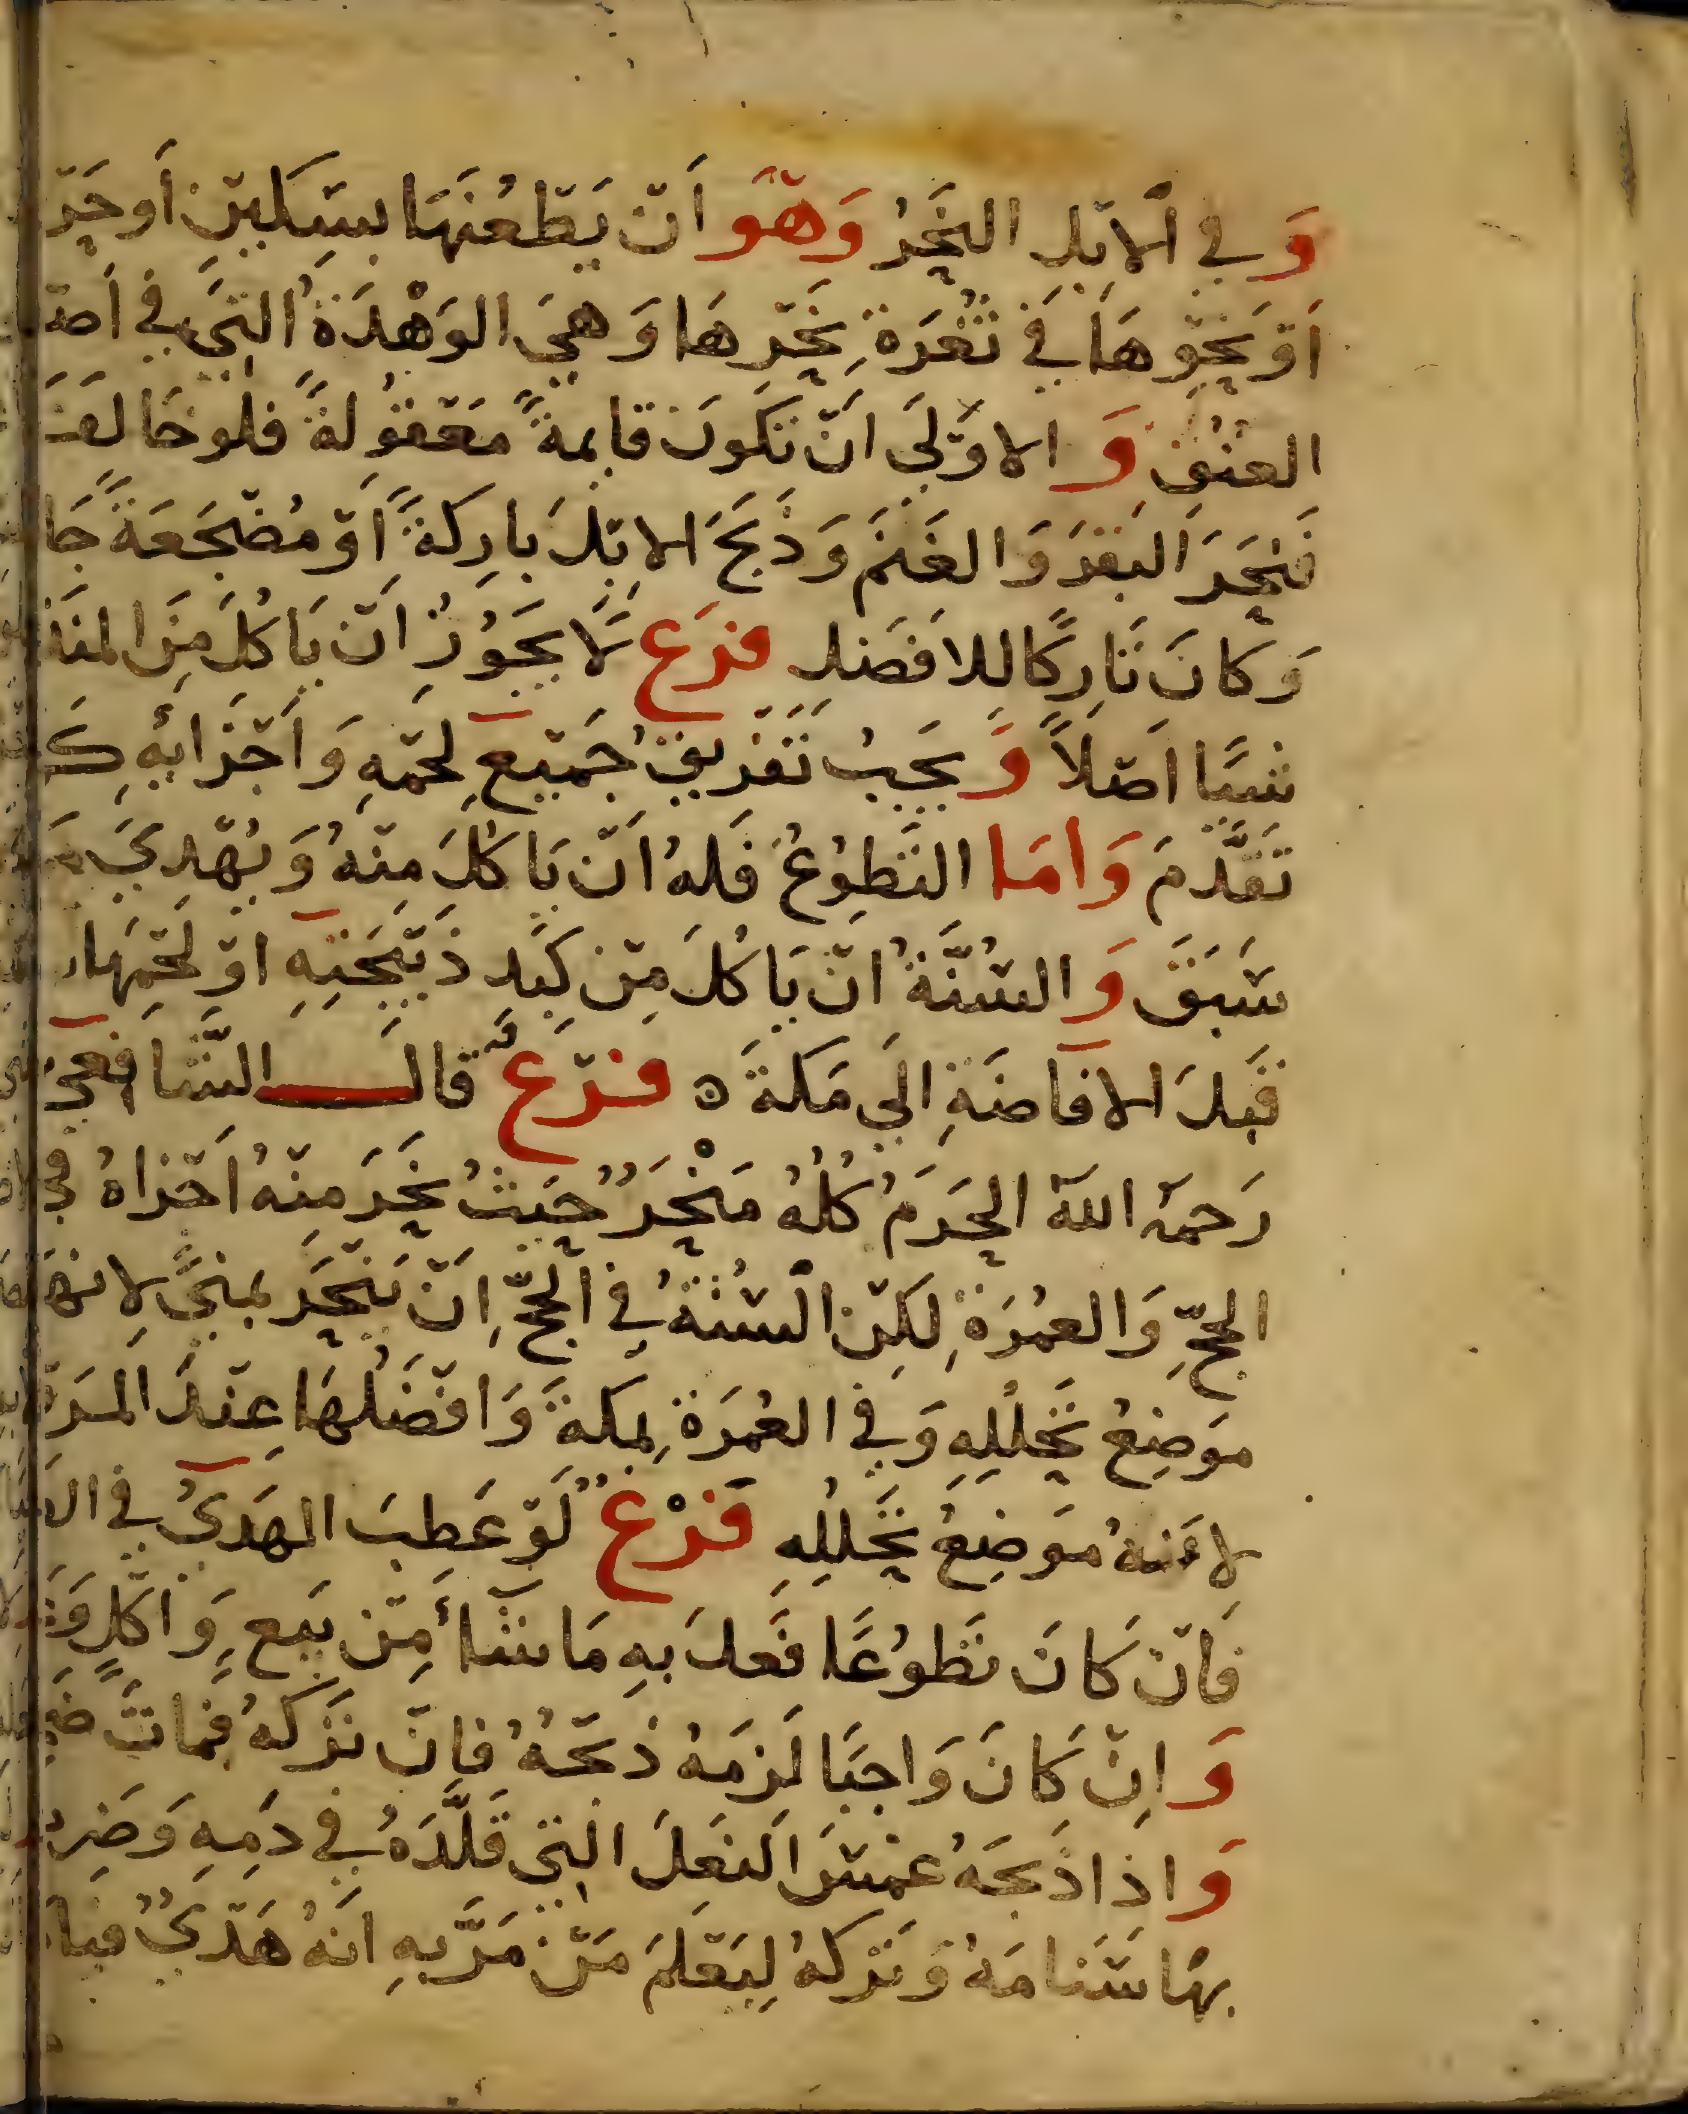 وَفي الابِلِ النَّحَرُ وَهْوَ اَنْ يَطْعُنَهَا بسِكينِ اَو
اَوْ نَحْوِهَا في ثُغْرَةِ نَحْرِهَا وَهيَ الوَهْدَةُ التي في
العُنُقِ وَ الاوْلَى اَنْ تَكونَ قايمةً مَعْقُولَةً فلو خَالفَ
فَنَحَرَ البَقرَ وَالغَنَمَ وَذَبَحَ الابِلَ بارِكَةً اَوْ مُضْجَعَةً
وَكانَ تَارِكًا للافضَلِ فرَع لَا يجَوُزُ اَنْ يَاكُلَ مِنَ
شيًا اصْلاً وَ يجَبُ تَفْرِيقُ جَميْعِ لَحْمِهِ وَاَجْزَائِهِ
تَقَدَّمَ وَامَا التَطوُعُ فَلهُ اَنْ يَاكُلَ مِنْهُ وَيُهْدِيَ
سَبَقَ وَ السُنَّةُ انْ يَاكُلَ مِنْ كَبِدِ ذَبْيحَتِهِ اوْ لَحْمِهَا
قَبلَ الافاضَةِ الَى مَكةَ ه فرْع قالَ الشَّافِعيُ
رَحِمَهُ اللهُ الحَرَمُ كُلُهُ مَنْحَرٌ حَيثُ نَحَرَ مِنْهُ اَجْزاهُ في
الحَجِّ وَالعمُرَةِ لكِنْ السُنَةُ في الحَجِّ اَنْ يَنْحَرَ بمنىً لِانهَا
موَضِعُ تَحَلُلِهِ وَفي العُمرَةِ بمَكةَ وَافْضَلُهَا عِنْدَ
لِانَهُ مَوَضِعُ تَحَلُلِهِ فَرْعٌ لَوْ عَطِبَ الهَدَىُ في
فَانْ كَانَ تَطَوُعًا فَعلَ بهِ مَا شَآءَ مِنْ بَيعٍ وَاكْلٍ
وَ انْ كَانَ وَاجبًا لَزمَهُ ذبْحُهُ فإنْ تَرَكهُ فمَاتَ
وَاذَا ذَبحَهُ غمسَ النَعلَ التي قَلَّدَهُ في دَمِهِ وَضَربَ
بهَا سَنَامَهُ وَتَرَكهُ لِيَعْلَمَ مَنْ مَرَّ بهِ انَهُ هَدْىٌ